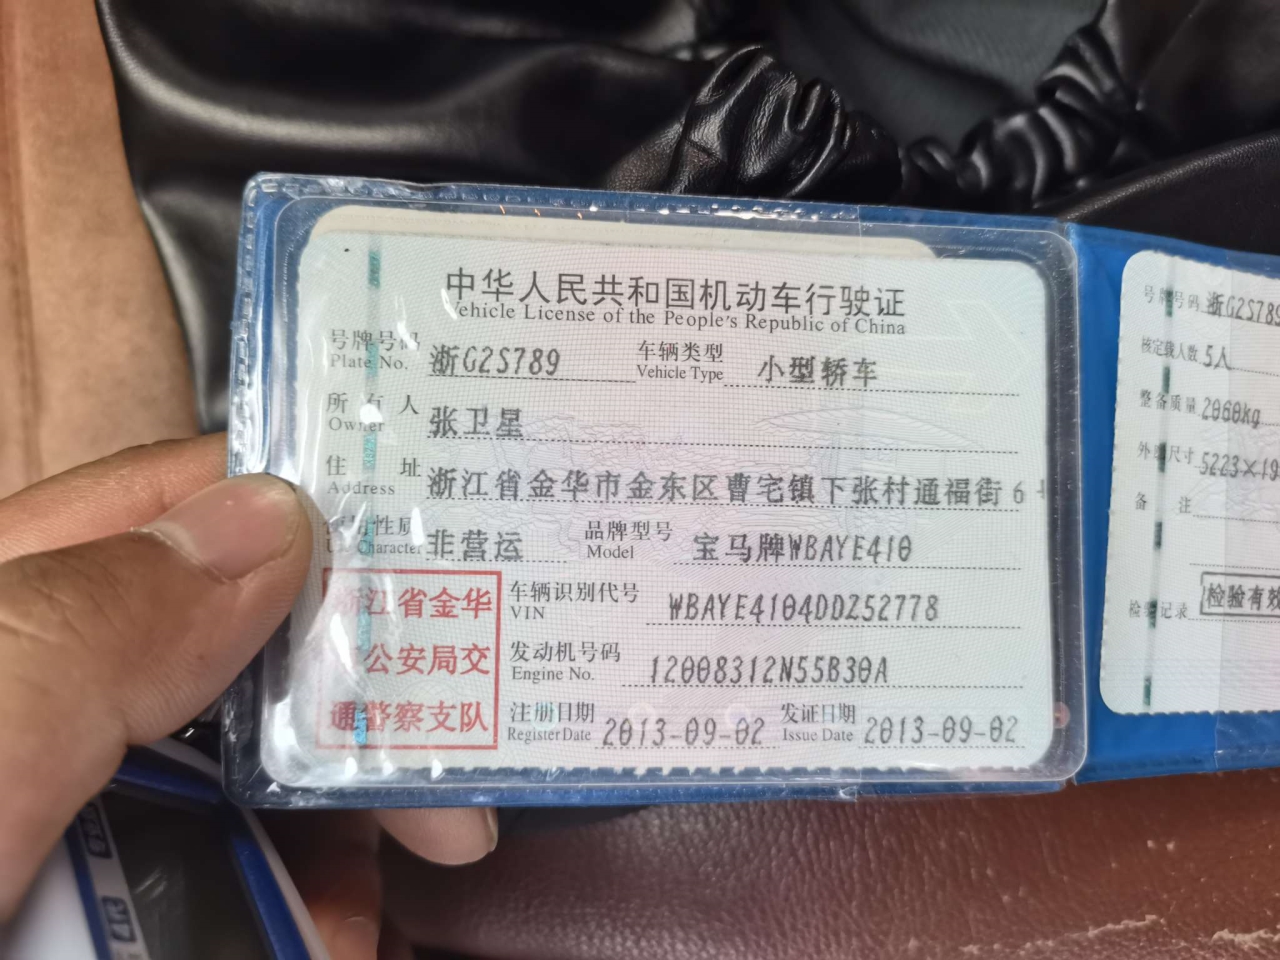 中华人民共和国机动车行驶证
Vehicle License of the People's Republic of China
号牌号码 浙G2S789 车辆类型 小型轿车
Plate No. Vehicle Type
所有人 张卫星
Owner
住址 浙江省金华市金东区曹宅镇下张村通福街6
Address
使用性质 非营运 品牌型号 宝马牌WBAYE410
Use Character Model
浙江省金华
公安局交
通警察支队
车辆识别代号 WBAYE4104DDZ52778
VIN
发动机号码 12008312N55B30A
Engine No.
注册日期 2013-09-02 发证日期 2013-09-02
Register Date Issue Date
号牌号码 浙G2S789
核定载人数 5人
整备质量 2060kg
外廓尺寸 5223×19
备注
检验记录 检验有效